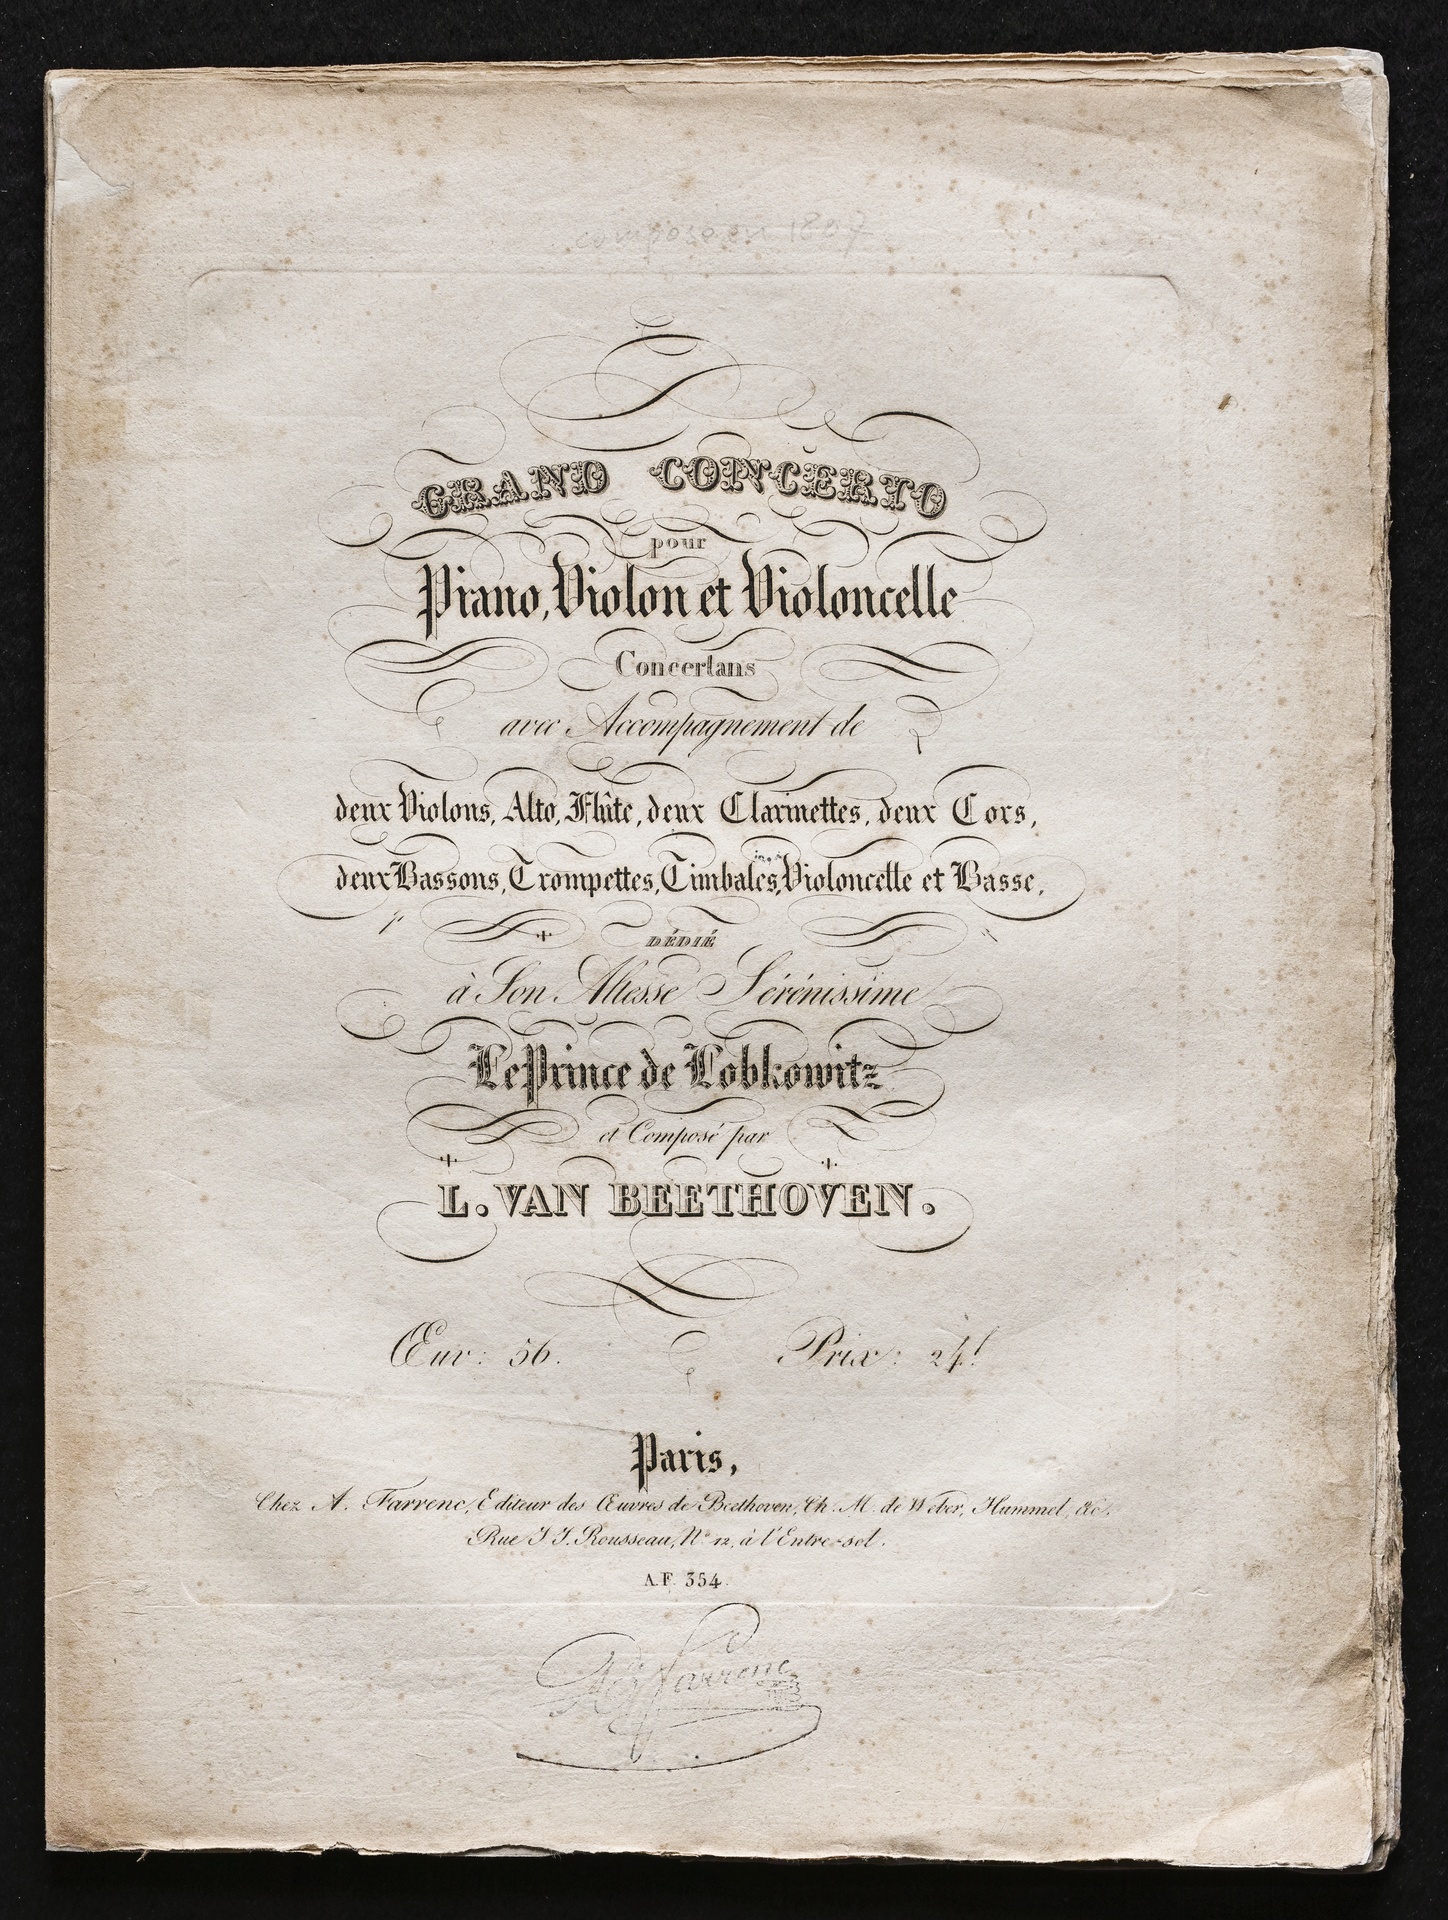 composé en 1807
GRAND CONCERTO
pour
Piano, Violon et Violoncelle
Concertans
avec Accompagnement de
deux Violons, Alto, Flûte, deux Clarinettes, deux Cors,
deux Bassons, Trompettes, Timbales, Violoncelle et Basse,
DÉDIÉ
à Son Altesse Sérénissime
Le Prince de Lobkowitz
et Composé par
L. VAN BEETHOVEN.
Œuv: 56. Prix: 24f
Paris,
Chez A. Farrenc, Editeur des Œuvres de Beethoven, Ch. M. de Weber, Hummel, &c.
Rue J. J. Rousseau, N° 12, à l'Entre-sol.
A.F. 354.
Farrenc